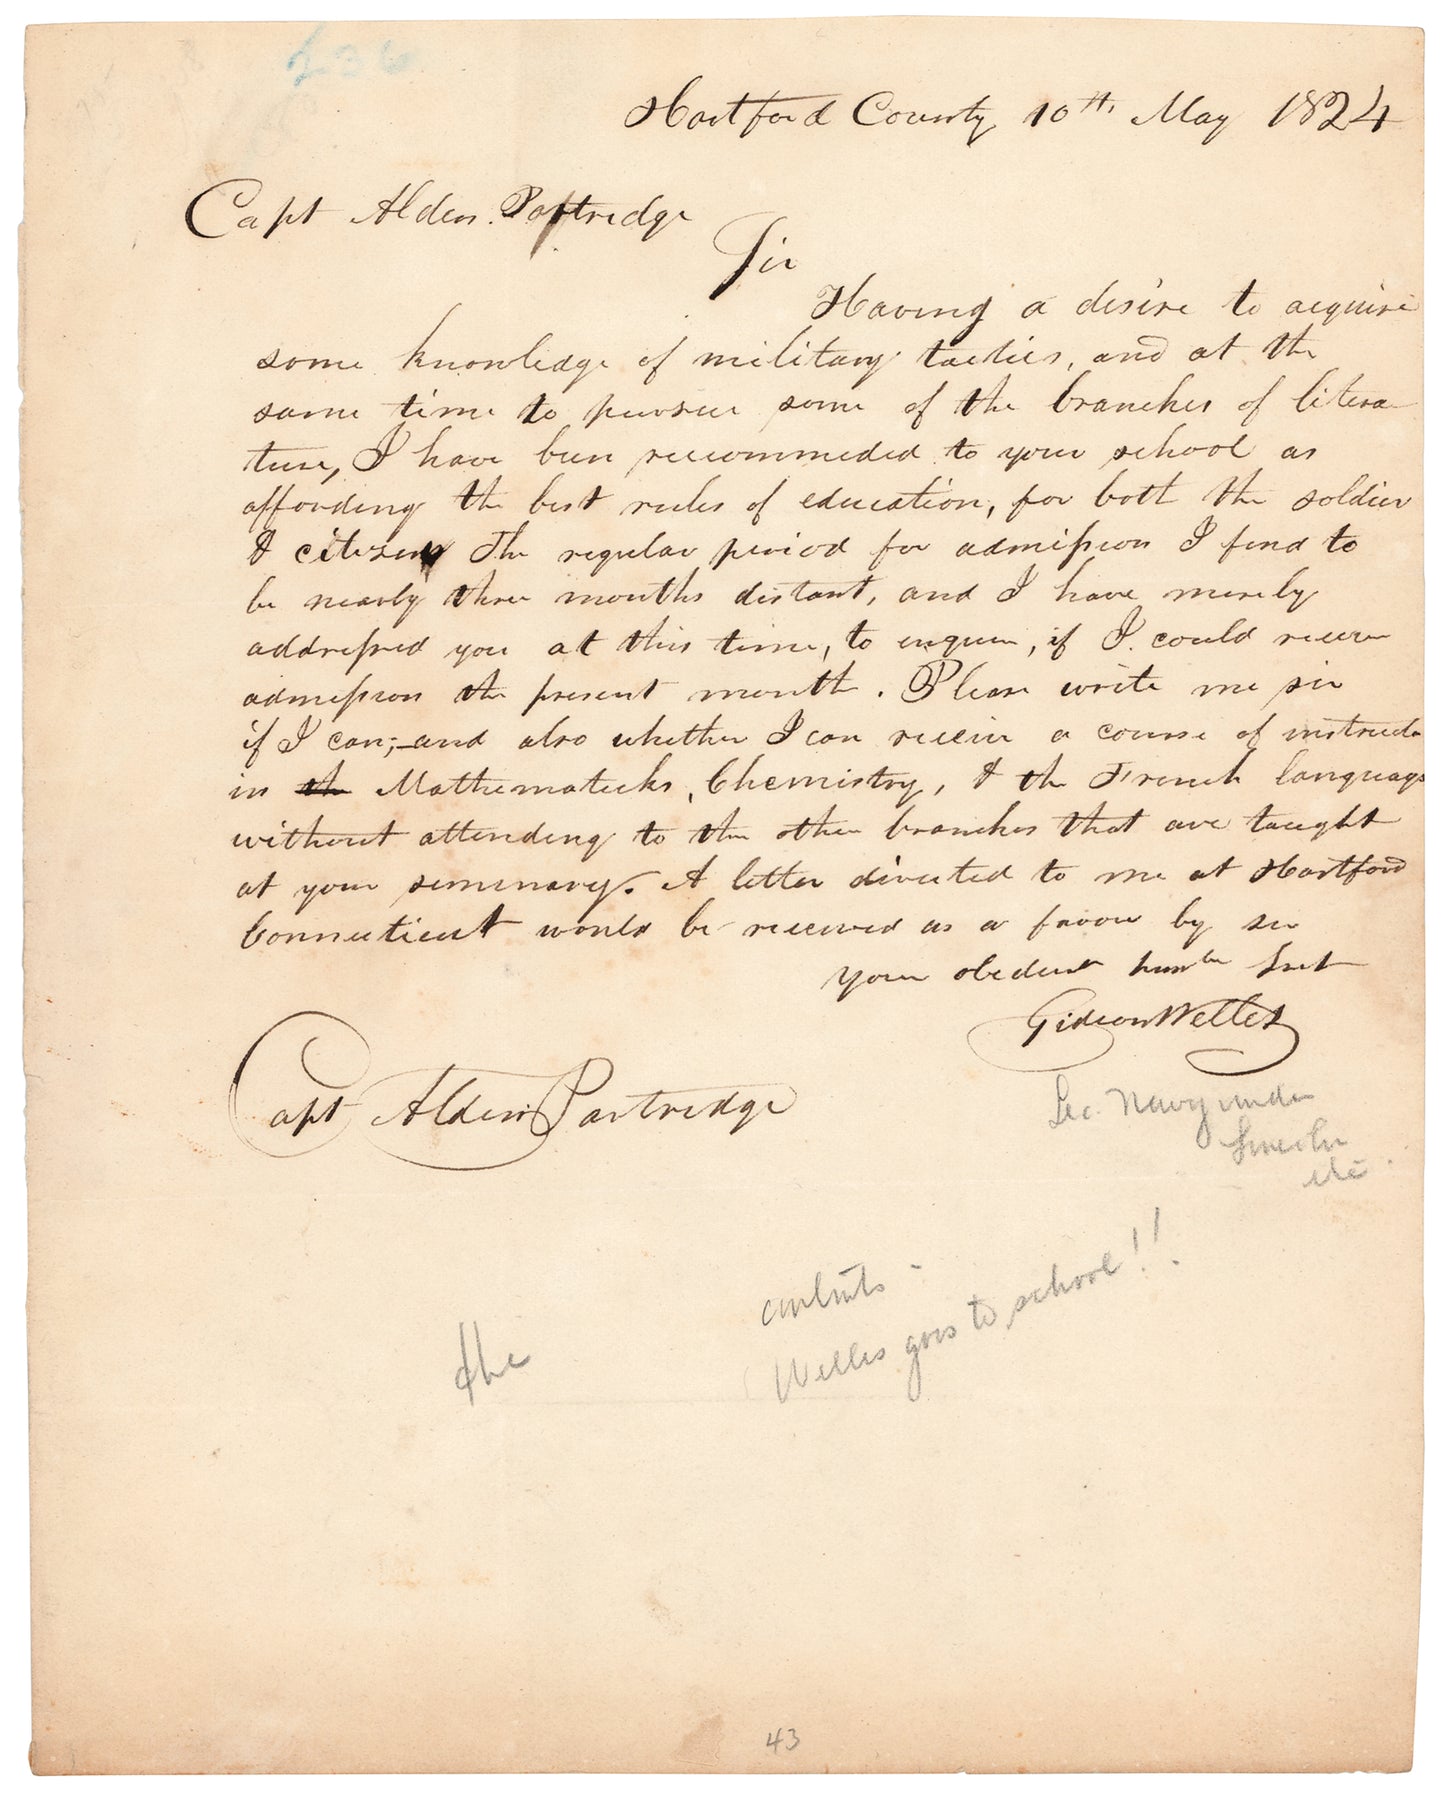 236
Hartford County 10th May 1824
Capt Alden Partridge
Sir
Having a desire to acquire
some knowledge of military tactics, and at the
same time to pursue some of the branches of litera
ture, I have been recommeded to your school as
affording the best rules of education, for both the soldier
& citizen The regular period for admission I find to
be nearly three months distant, and I have merely
addressed you at this time, to enquire, if I could receive
admission the present month. Please write me sir
if I can;—and also whether I can receive a course of instructn
in the Mathematicks, Chemistry, & the French language
without attending to the other branches that are taught
at your seminary. A letter directed to me at Hartford
Connecticut would be received as a favour by sir
your obedient humble Servt
Gideon Welles
Capt Alden Partridge
Sec. Navy under
Lincoln
etc
contents -
Welles goes to school!!
the
43